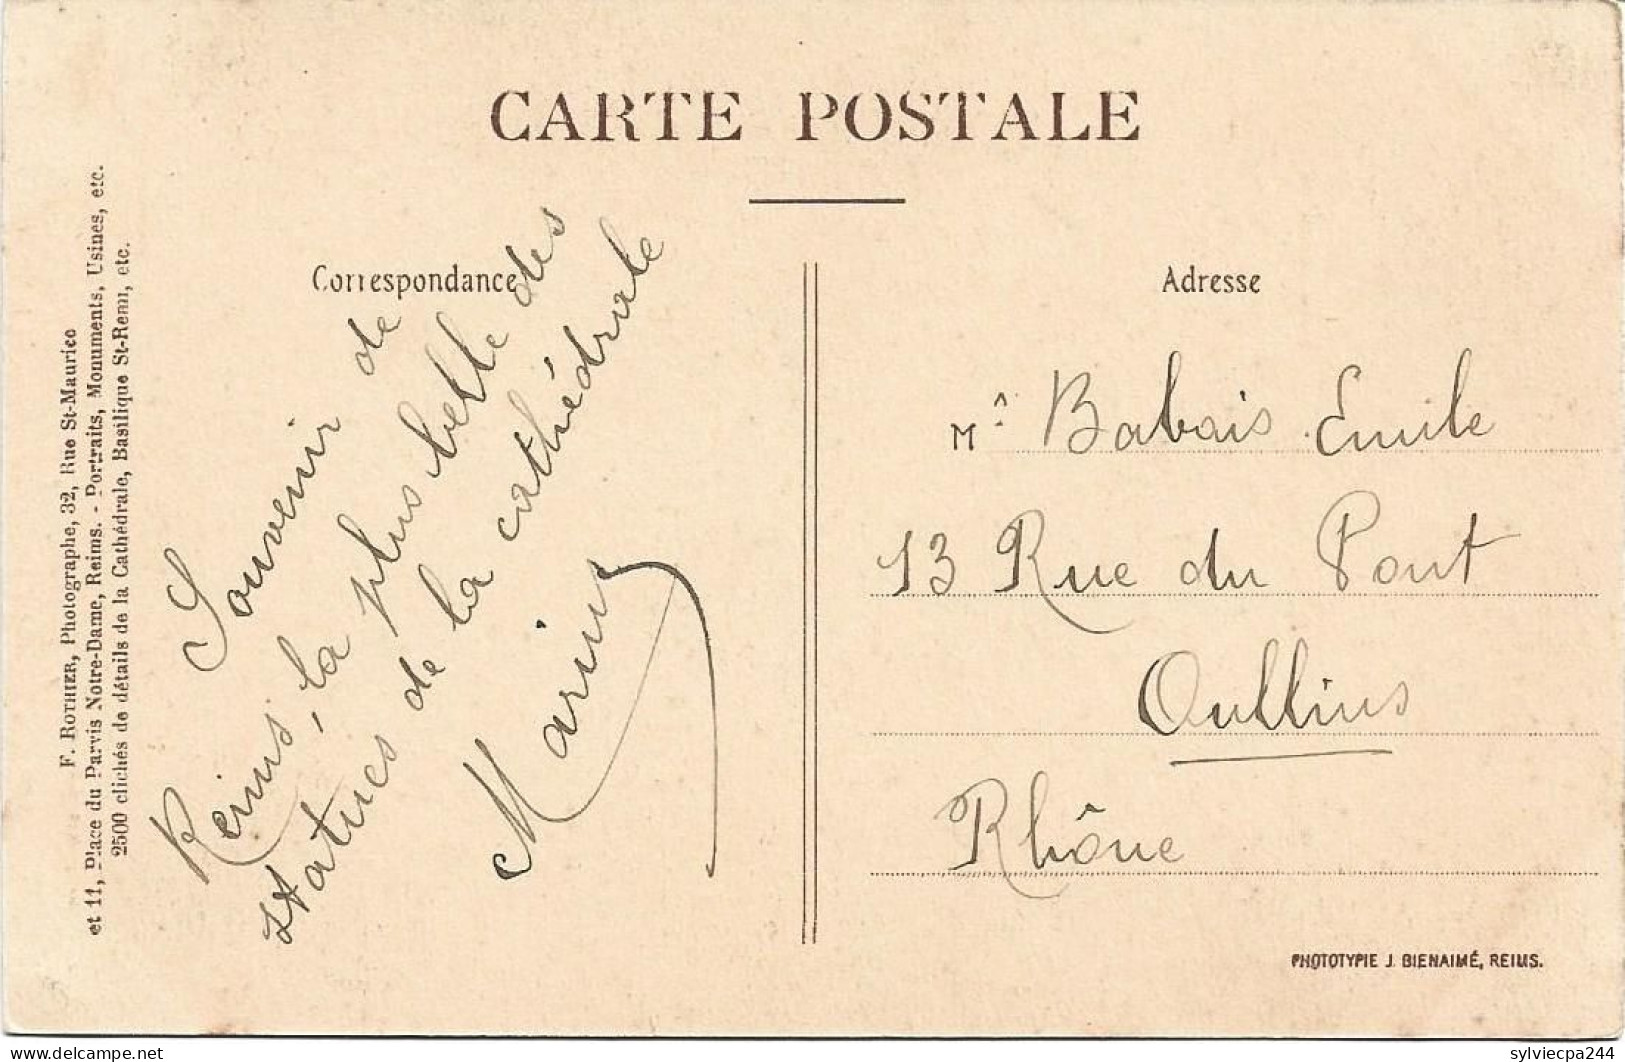 CARTE POSTALE
F. ROTHIER, Photographe, 32, Rue St-Maurice
et 11, Place du Parvis Notre-Dame, Reims. - Portraits, Monuments, Usines, etc.
2500 clichés de détails de la Cathédrale, Basilique St-Remi, etc.
Correspondance
Souvenir de
Reims, la plus belle des
statues de la cathédrale
Marius
Adresse
Mr Babois Emile
13 Rue du Pont
Oullins
Rhône
PHOTOTYPIE J. BIENAIMÉ, REIMS.
sylviecpa244